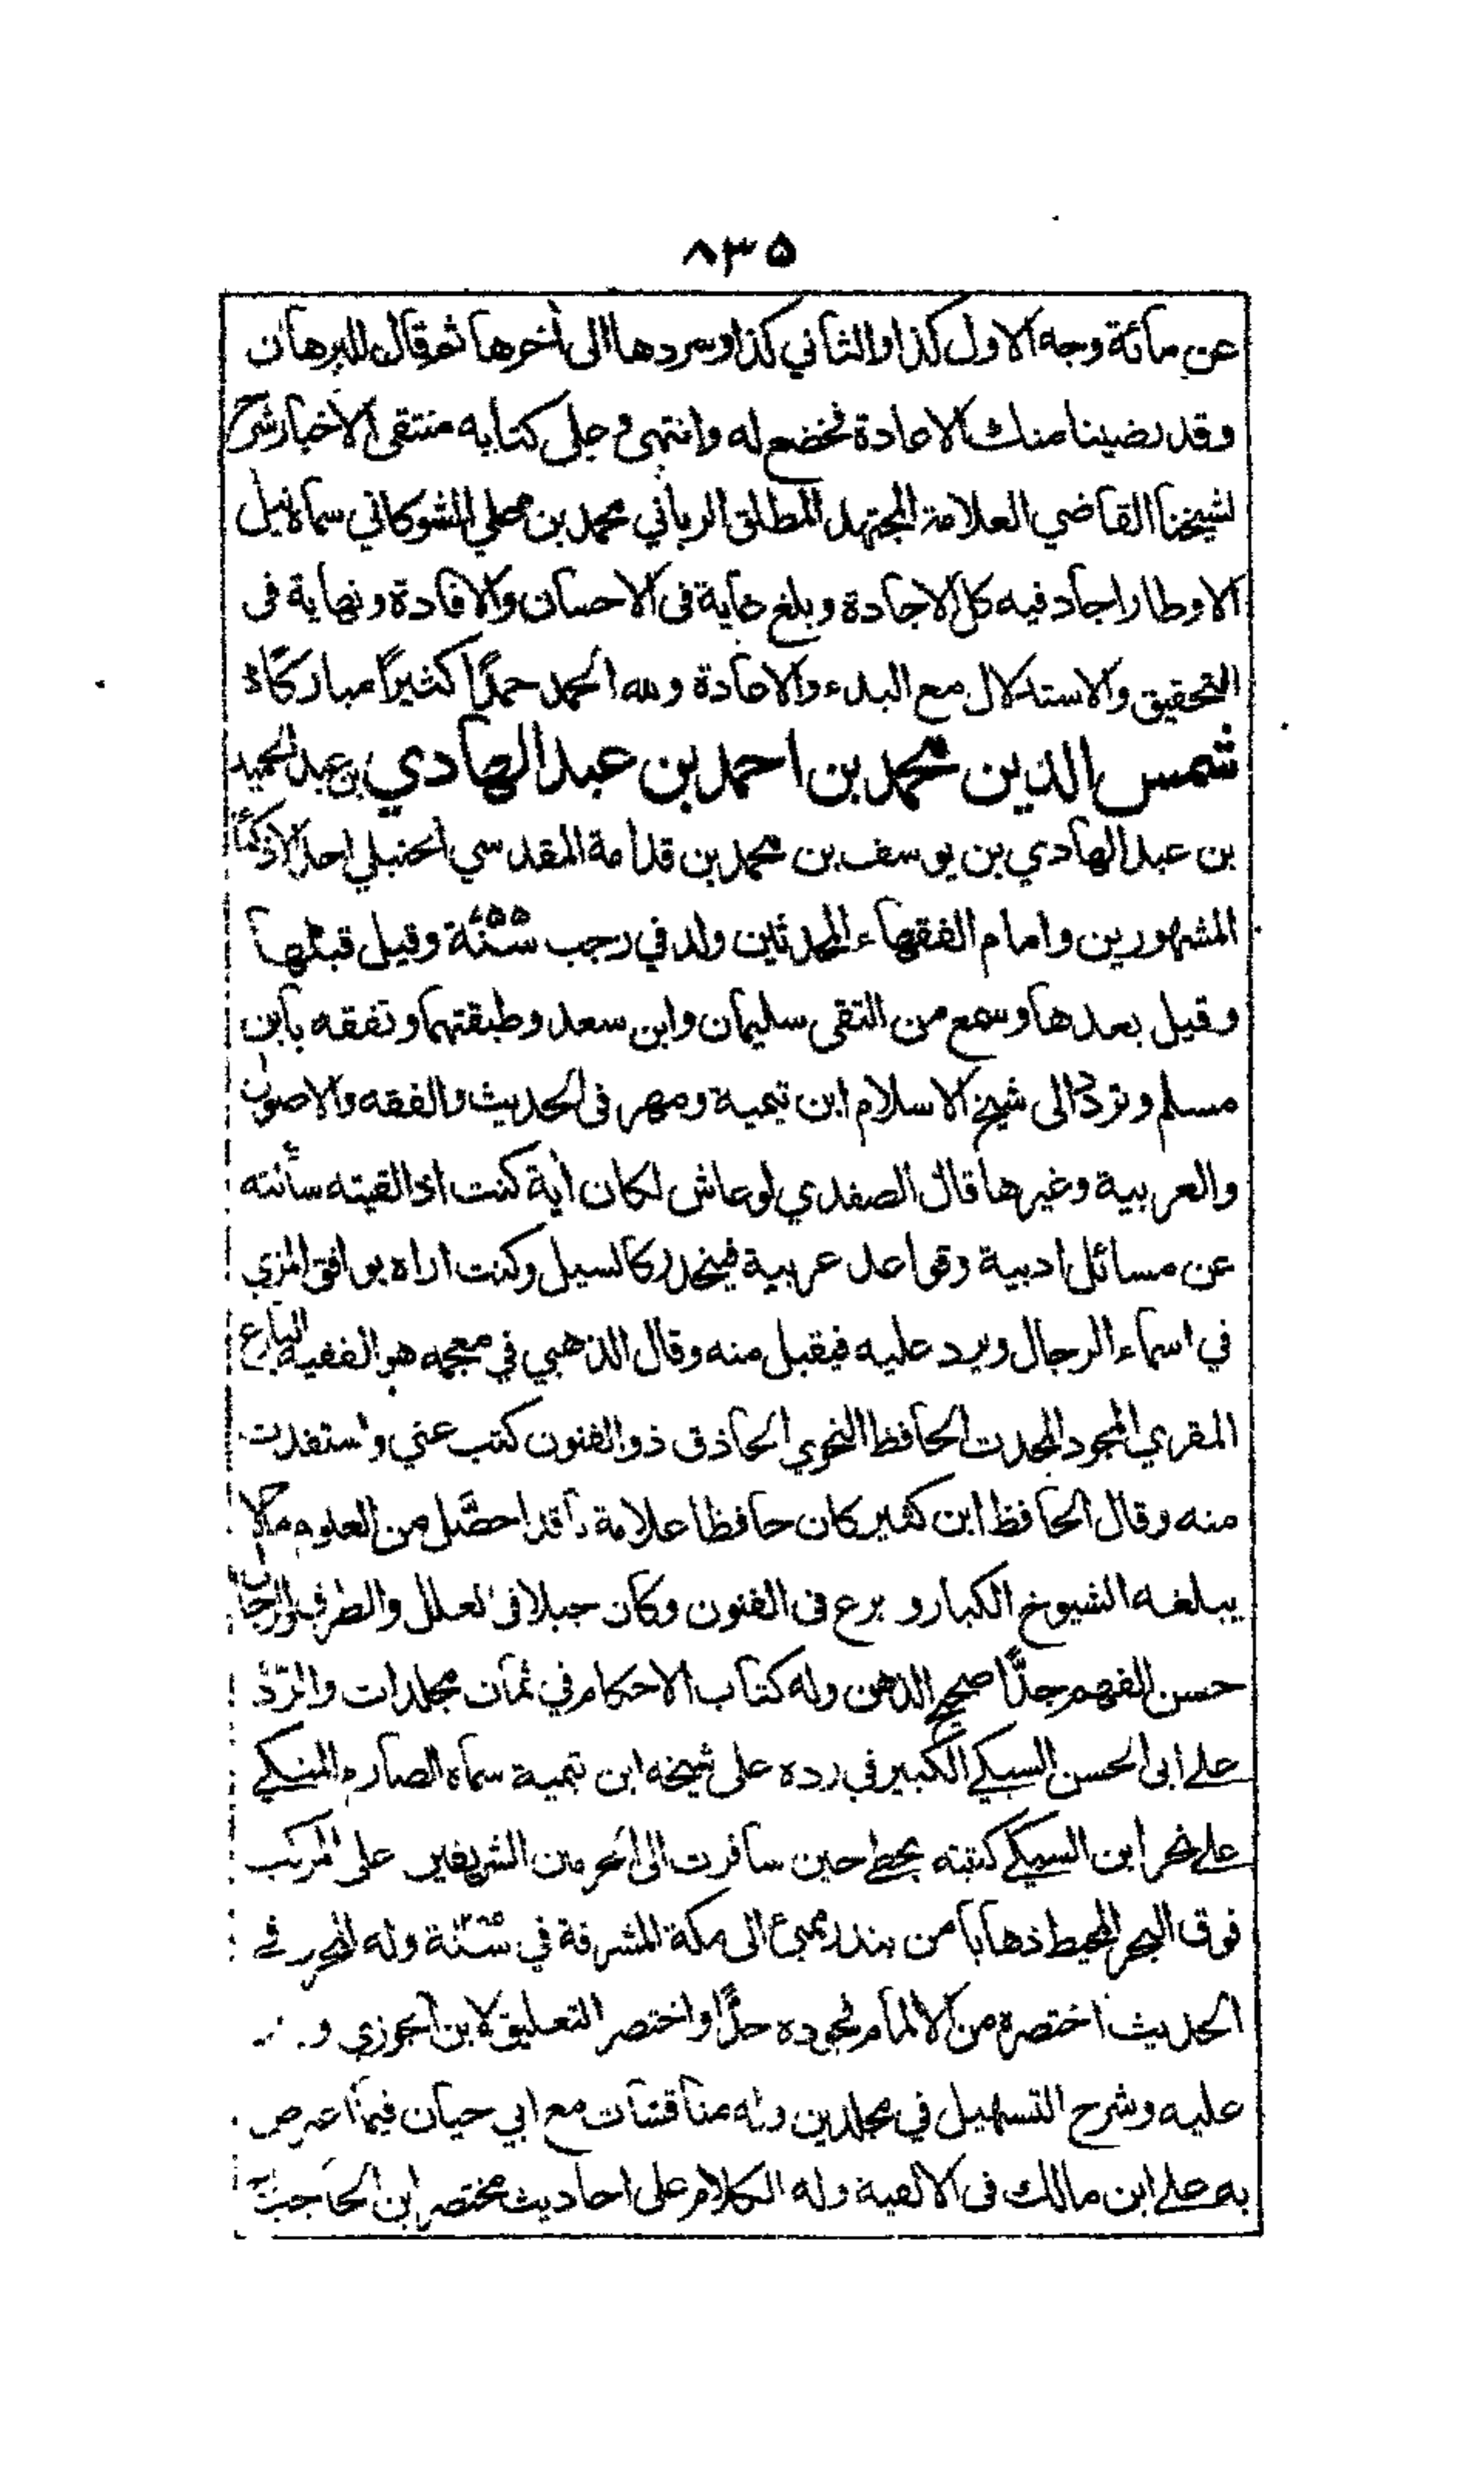 ٨٣٥
عن مآئة وجه الاول كذا والثاني كذا وسردها الى أخرها ثم قال للبرهان
وقد رضينا منك الاعادة فخضع له وانتهى وعلى كتابه منتقى الاخبار شرح
لشيخنا القاضي العلامة المجتهد المطلق الرباني محمد بن علي الشوكاني سماه نيل
الاوطار اجاد فيه كل الاجادة وبلغ غاية فى الاحسان والافادة ونهاية فى
التحقيق والاستدلال مع البدء والاعادة ولله الحمد حمدًا كثيرًا مباركًا
شمس الدين محمد بن احمد بن عبد الهادي بن عبد الحميد
بن عبد الهادي بن يوسف بن محمد بن قدامة المقدسي الحنبلي احد الاذكيا
المشهورين وامام الفقهاء المحدثين ولد في رجب سنة وقيل قبلها
وقيل بعدها وسمع من التقى سليمان وابن سعد وطبقتهما وتفقه بابن
مسلم وتردد الى شيخ الاسلام ابن تيمية ومهر فى الحديث والفقه والاصول
والعربية وغيرها قال الصفدي لو عاش لكان أية كنت اذا لقيته سألته
عن مسائل ادبية وقواعد عربية فينحدر كالسيل وكنت اراه يوافق المزي
في اسماء الرجال ويرد عليه فيقبل منه وقال الذهبي في معجمه هو الفقيه البارع
المقري المجود المحدث الحافظ النحوي الحاذق ذو الفنون كتب عني واستفدت
منه وقال الحافظ ابن كثير كان حافظا علامة ناقدا حصَّل من العلوم مالا
يبلغه الشيوخ الكبار وبرع فى الفنون وكان جبلا فى العلل والطرق والرجال
حسن الفهم جدًّا صحيح الذهن وله كتاب الاحكام في ثمان مجلدات والردّ
على ابى الحسن السبكي الكبير في رده على شيخه ابن تيمية سماه الصارم المنكي
على نحر ابن السبكي كتبته بخطي حين سافرت الى الحرمين الشريفين على المركب
فوق البحر المحيط ذهابا من بندر بمبئ الى مكة المشرفة في سنة وله المحرر في
الحديث اختصره من الالمام فجوده جدًّا واختصر التعليق لابن الجوزي و
عليه وشرح التسهيل في مجلدين وله مناقشات مع ابي حيان فيما اعترض
به على ابن مالك فى الالفية وله الكلام على احاديث مختصر ابن الحاجب